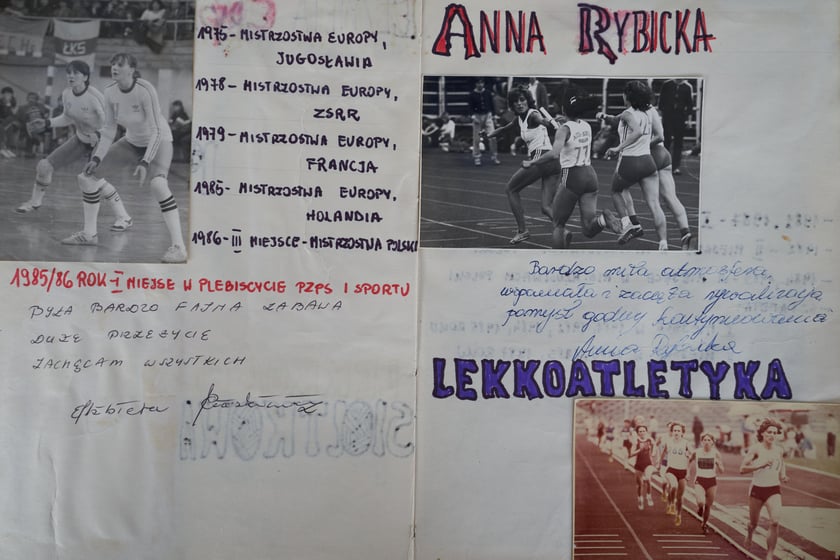 ŁKS
1975- MISTRZOSTWA EUROPY,
JUGOSŁAWIA
1978- MISTRZOSTWA EUROPY,
ZSRR
1979- MISTRZOSTWA EUROPY,
FRANCJA
1985- MISTRZOSTWA EUROPY,
HOLANDIA
1986- III MIEJSCE - MISTRZOSTWA POLSKI
1985/86 ROK - I MIEJSE W PLEBISCYCIE PZPS I SPORTU
BYŁA BARDZO FAJNA ZABAWA
DUŻE PRZEŻYCIE
ZACHĘCAM WSZYSTKICH
Elżbieta
ANNA RYBICKA
77
Bardzo miła atmosfera,
wspaniała i zacięta rywalizacja
pomysł godny kontynuowania
Anna Rybicka
LEKKOATLETYKA